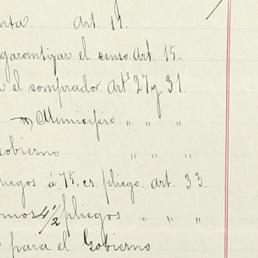 nta Art. 11.
garantizar el censo. Art. 15.
el comprador. Arts 27 y 31.
Municipio " " "
obierno " " "
liegos á 75. cs. pliego. art. 33.
mos 4 1/2 pliegos " " "
para el Gobierno